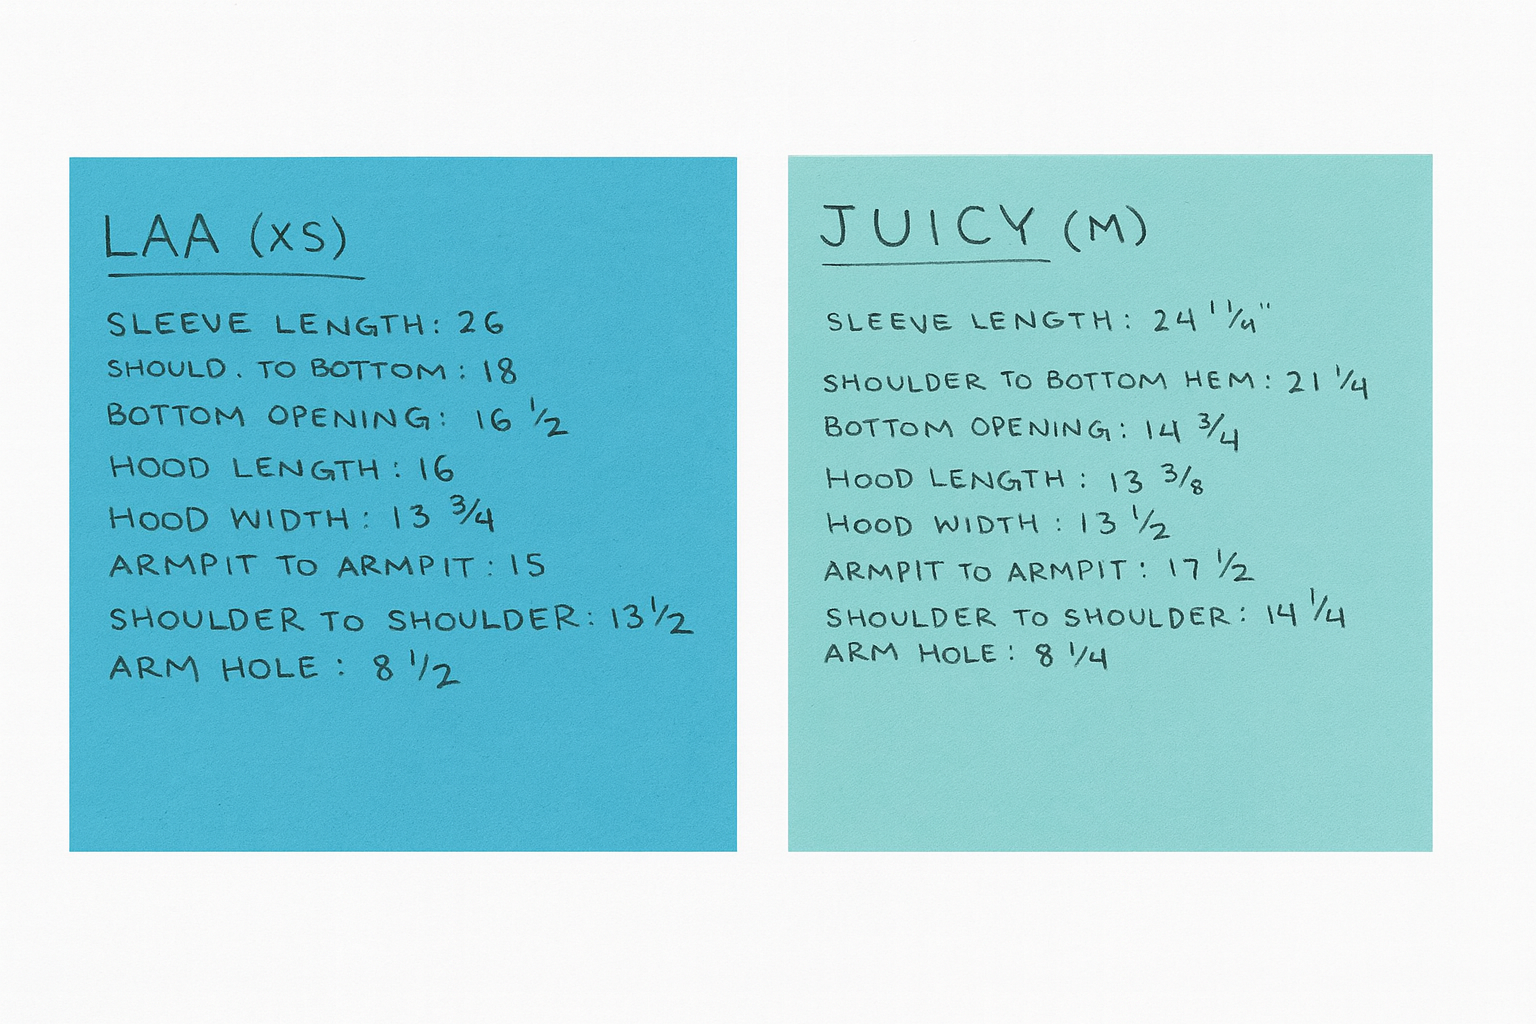 LAA (XS)
SLEEVE LENGTH: 26
SHOULD. TO BOTTOM: 18
BOTTOM OPENING: 16 1/2
HOOD LENGTH: 16
HOOD WIDTH: 13 3/4
ARMPIT TO ARMPIT: 15
SHOULDER TO SHOULDER: 13 1/2
ARM HOLE: 8 1/2
JUICY (M)
SLEEVE LENGTH: 24
SHOULDER TO BOTTOM HEM: 21 1/4
BOTTOM OPENING: 14 3/4
HOOD LENGTH: 13 3/8
HOOD WIDTH: 13 1/2
ARMPIT TO ARMPIT: 17 1/2
SHOULDER TO SHOULDER: 14 1/4
ARM HOLE: 8 1/4